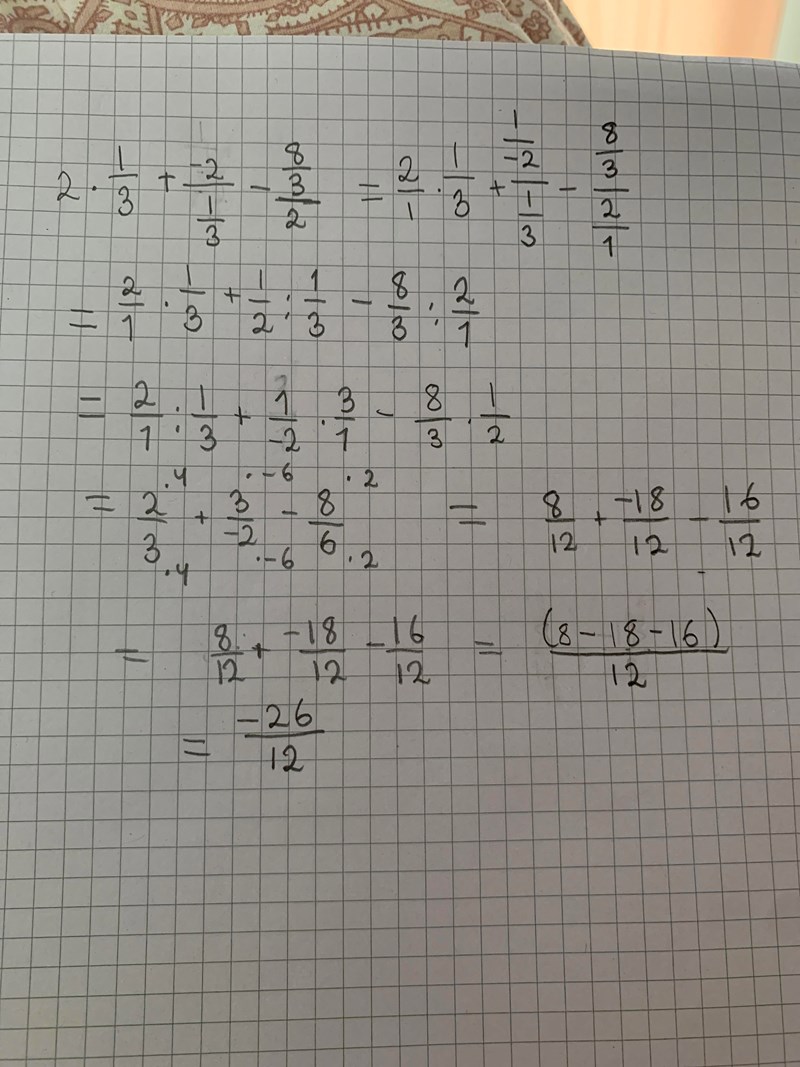 2 · 1/3 + -2/(1/3) - (8/3)/2 = 2/1 · 1/3 + (1/-2)/(1/3) - (8/3)/(2/1)
= 2/1 · 1/3 + 1/2 : 1/3 - 8/3 : 2/1
= 2/1 : 1/3 + 1/-2 · 3/1 - 8/3 · 1/2
= 2·4/3·4 + 3·-6/-2·-6 - 8·2/6·2 = 8/12 + -18/12 - 16/12
= 8/12 + -18/12 - 16/12 = (8-18-16)/12
= -26/12